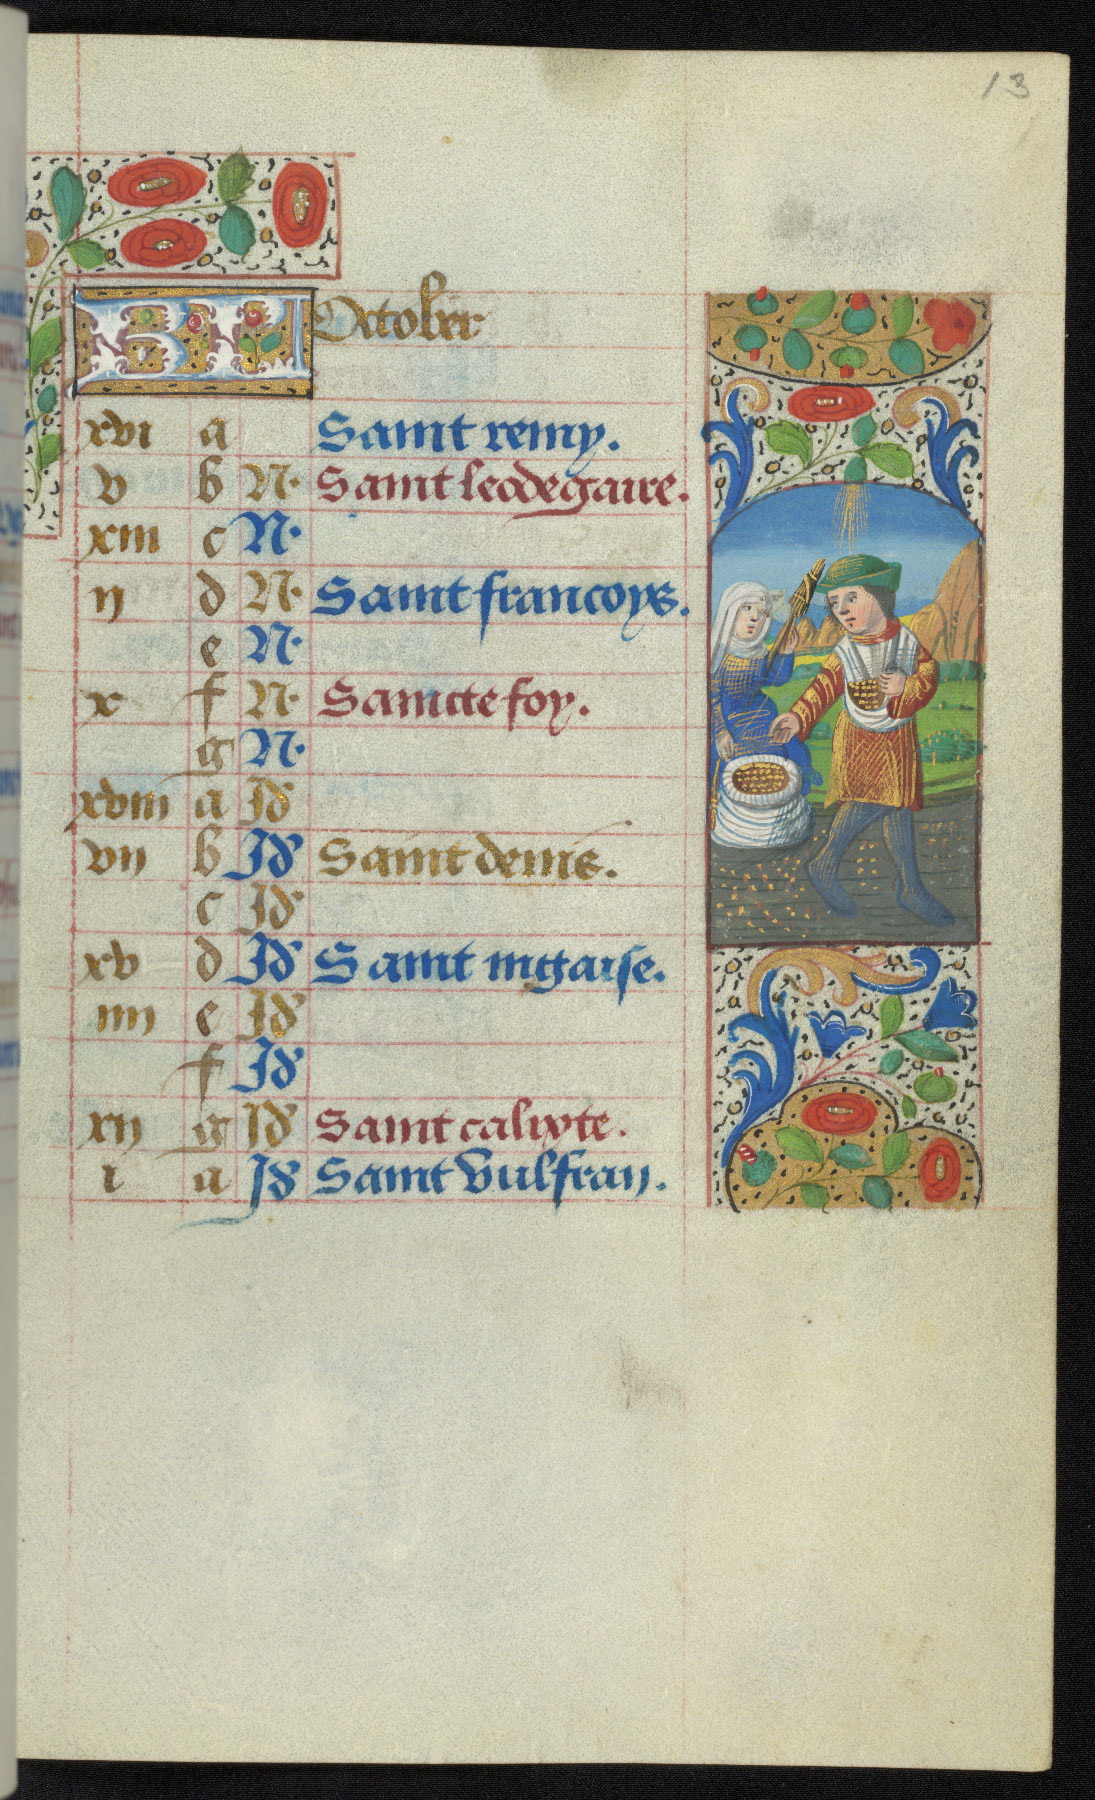 13
KL October
xvi a Saint remy.
v b N. Saint leodegaire.
xiii c N.
ii d N. Saint francoys.
e N.
x f N. Saincte foy.
g N.
xviii a Id
vii b Id Saint denis.
c Id
xv d Id Saint nigaise.
iiii e Id
f Id
xii g Id Saint calixte.
i a Id Saint vulfran.